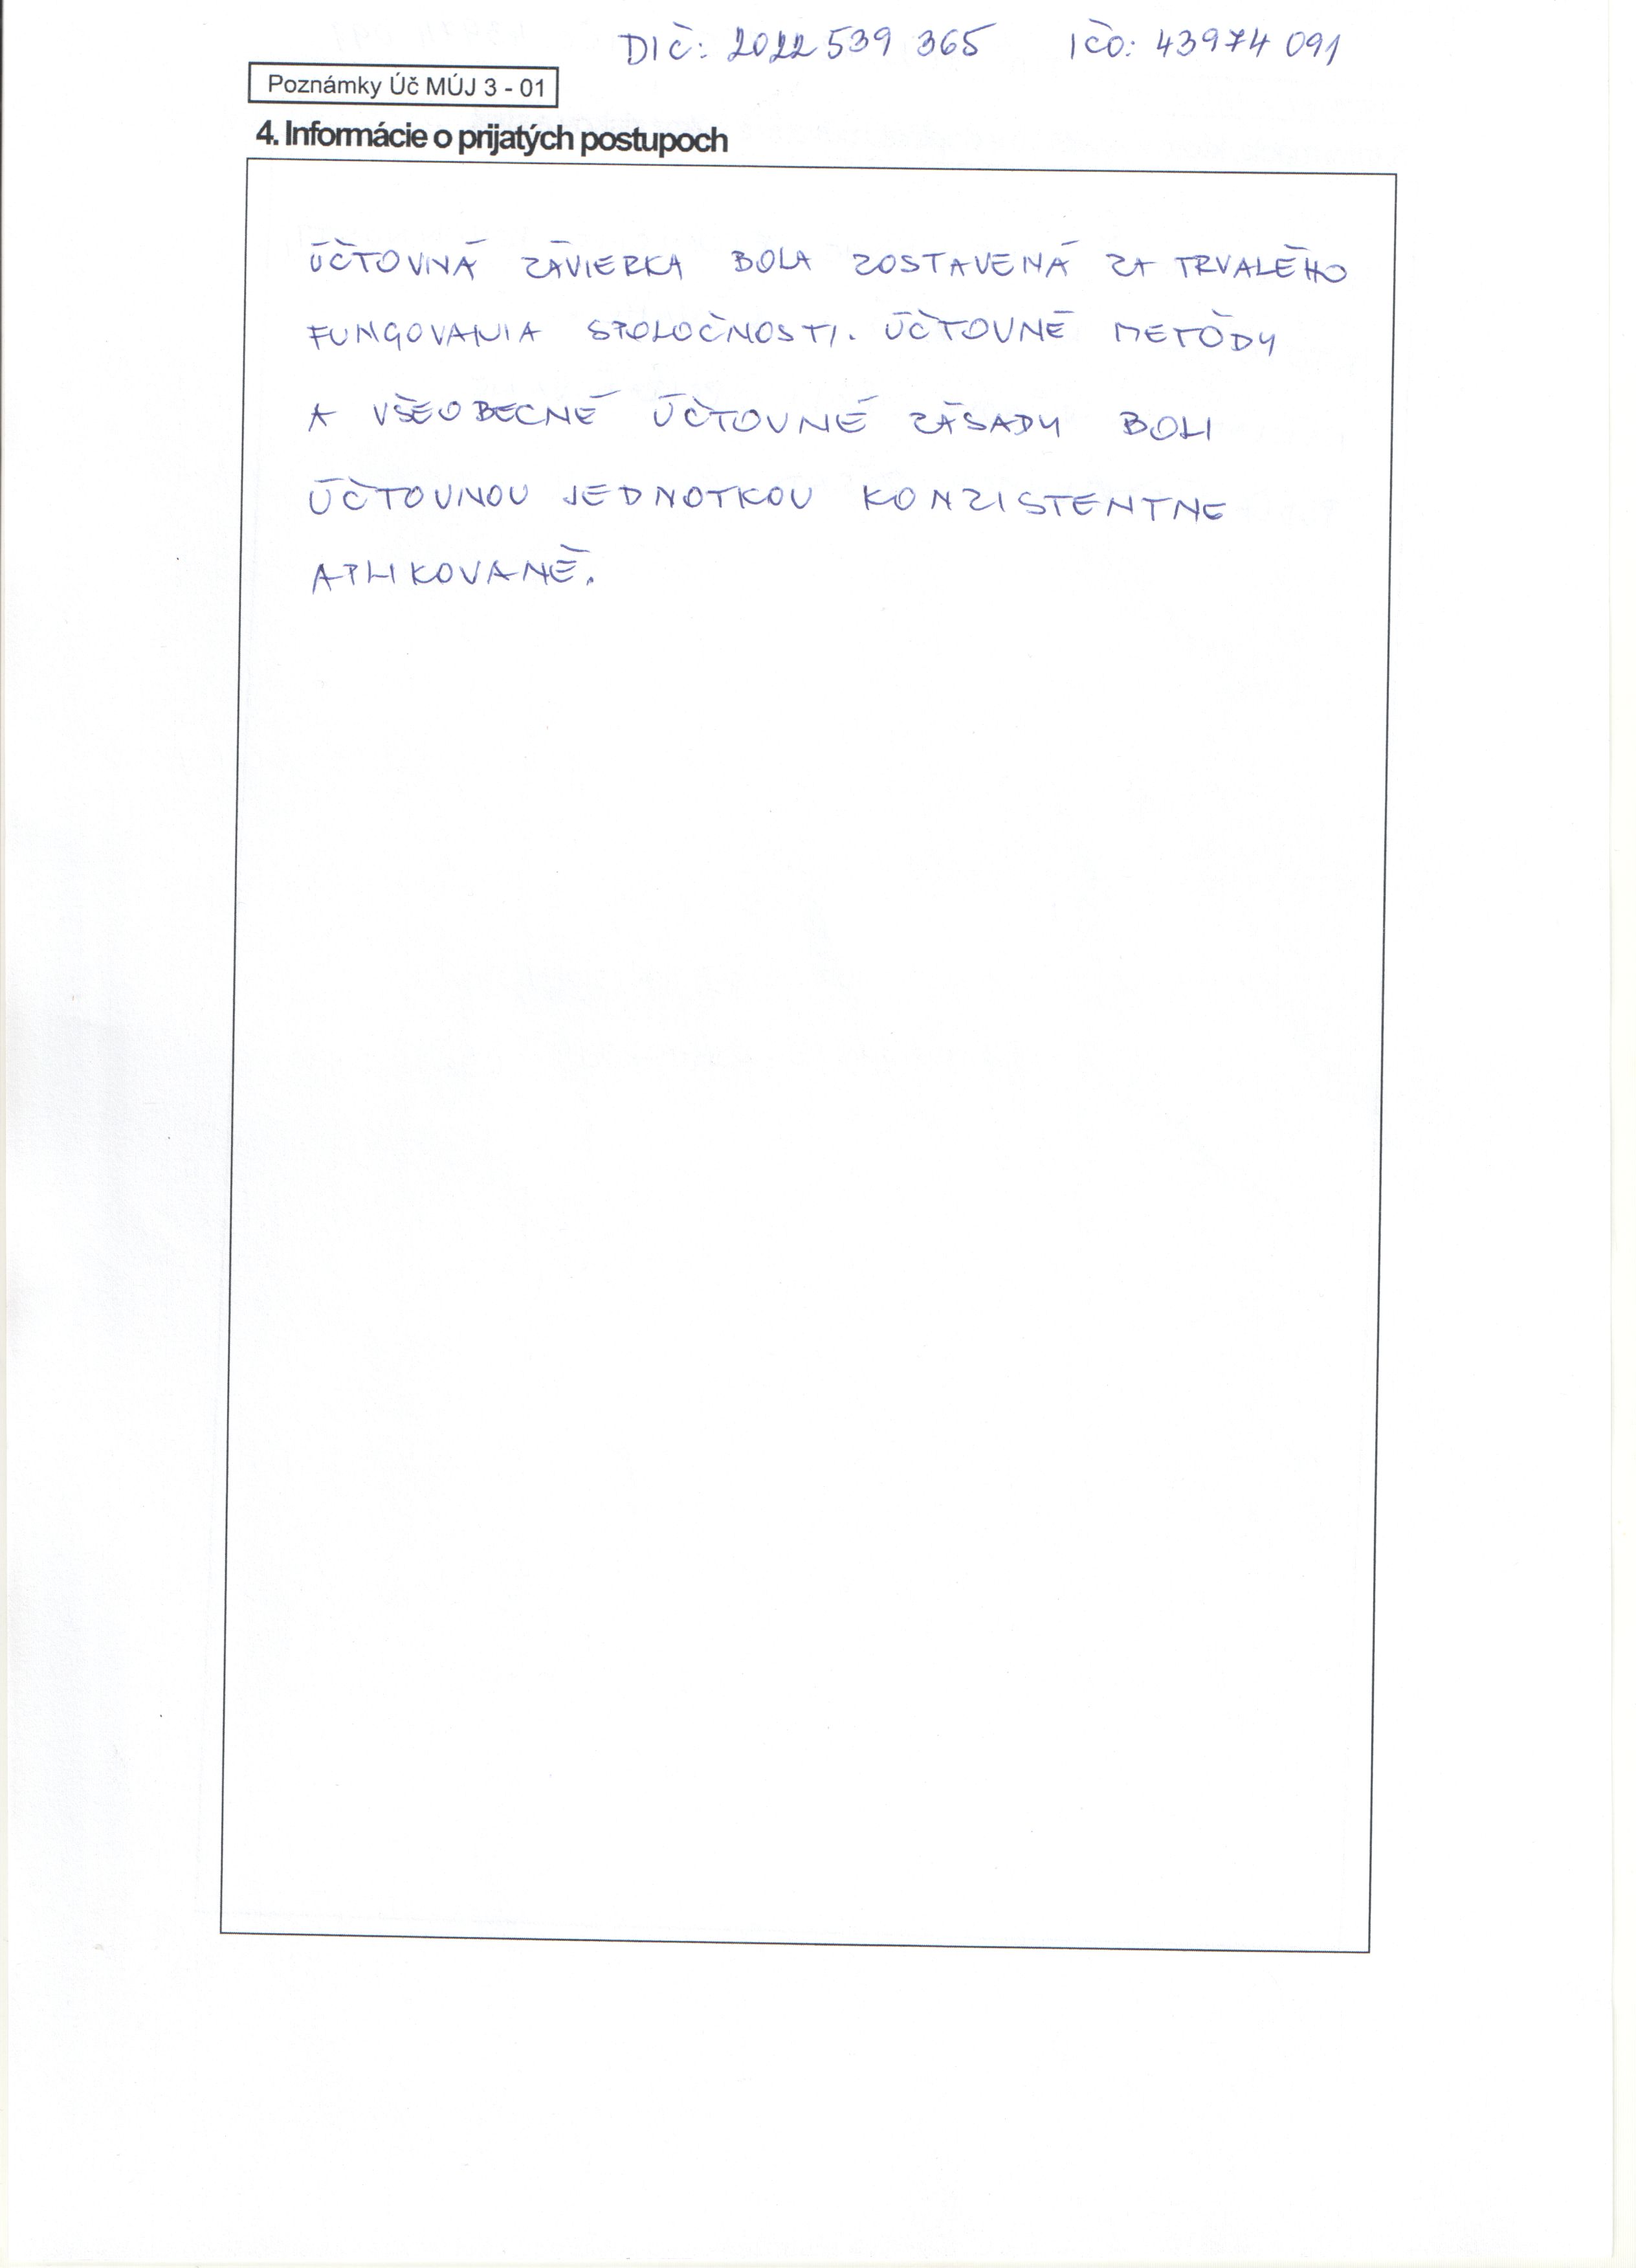 DIČ: 2022 539 365 IČO: 43974 091
Poznámky Úč MÚJ 3 - 01
4. Informácie o prijatých postupoch
ÚČTOVNÁ ZÁVIERKA BOLA ZOSTAVENÁ ZA TRVALÉHO
FUNGOVANIA SPOLOČNOSTI. ÚČTOVNÉ METÓDY
A VŠEOBECNÉ ÚČTOVNÉ ZÁSADY BOLI
ÚČTOVNOU JEDNOTKOU KONZISTENTNE
APLIKOVANÉ.